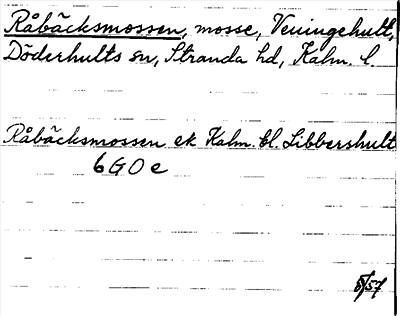 Råbäcksmossen, mosse, Veningehult,
Döderhults sn, Stranda hd, Kalm. l.
Råbäcksmossen ek Kalm. bl. Libbershult
6 G 0 e
8/57